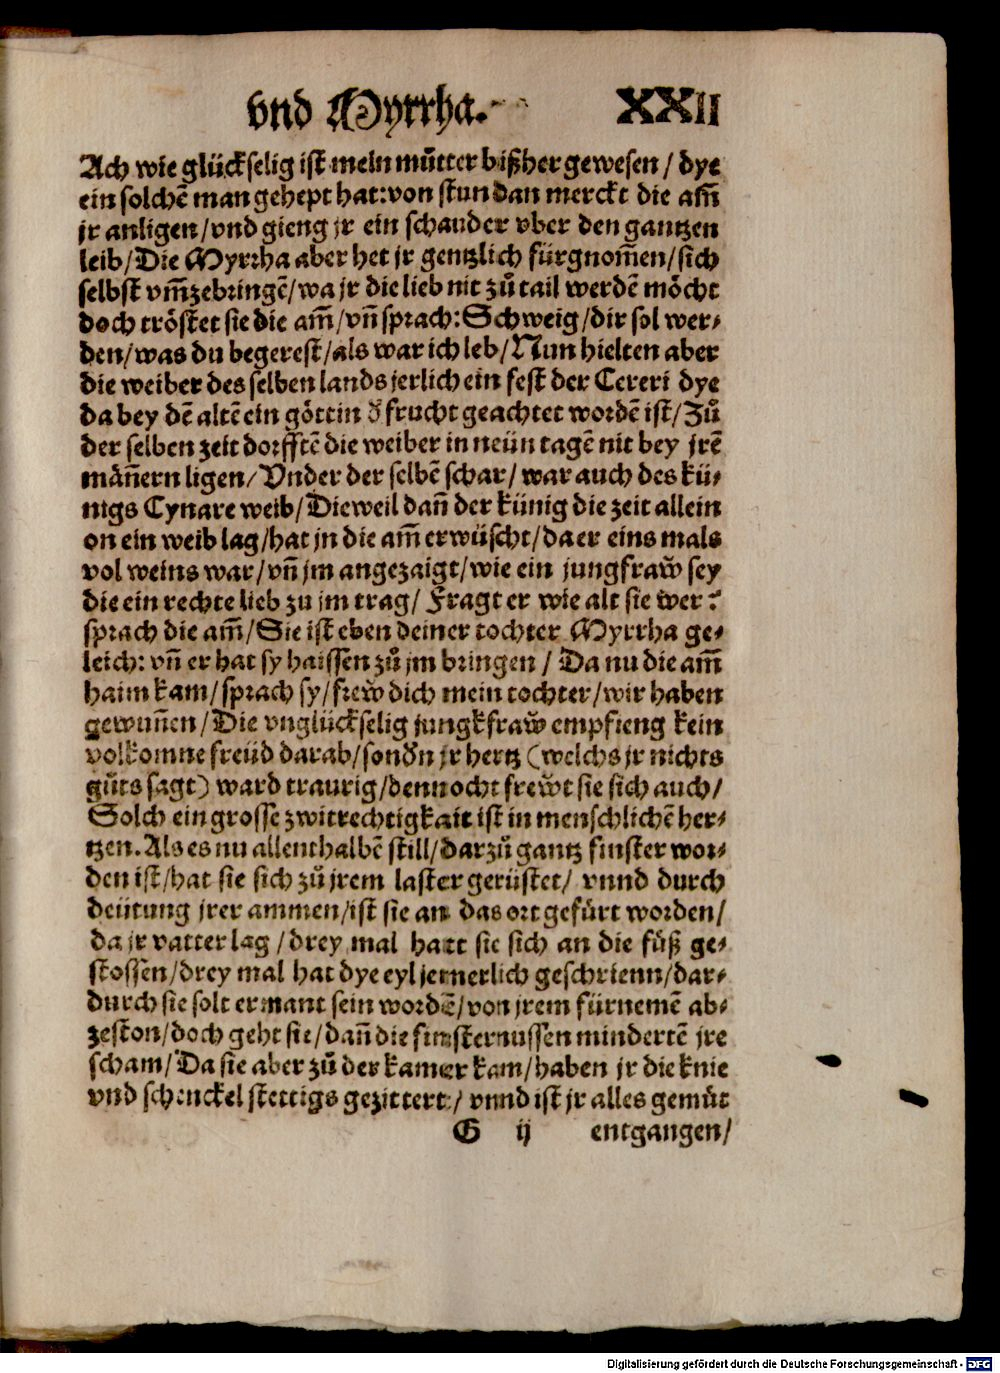 vnd Myrrha. XXII
Ach wie glückselig ist mein můtter bißher gewesen / dye
ein solchẽ man gehept hat: von stundan merckt die am̃
jr anligen / vnd gieng jr ein schauder vber den gantzen
leib / Die Myrrha aber het jr gentzlich fürgnom̃en / sich
selbst vm̃zebringẽ / wa jr die lieb nit zů tail werdẽ möcht
doch tröstet sie die am̃ / vñ sprach: Schweig / dir sol wer⸗
den / was du begerest / als war ich leb / Nun hielten aber
die weiber des selben lands jerlich ein fest der Cereri dye
da bey dẽ altẽ ein göttin d̕ frucht geachtet wordẽ ist / Zů
der selben zeit dorfftẽ die weiber in neün tagẽ nit bey jrẽ
mäñern ligen / Vnder der selbẽ schar / war auch des kü⸗
nigs Cynare weib / Dieweil dañ der künig die zeit allein
on ein weib lag / hat jn die am̃ erwüscht / da er eins mals
vol weins war / vñ jm angezaigt / wie ein jungfraw̃ sey
die ein rechte lieb zu jm trag / Fragt er wie alt sie wer?
sprach die am̃ / Sie ist eben deiner tochter Myrrha ge⸗
leich: vñ er hat sy haissen zů jm bringen / Da nu die am̃
haim kam / sprach sy / frew dich mein tochter / wir haben
gewuñen / Die vnglückselig jungkfraw̃ empfieng kein
volkomne freüd darab / sond̕n jr hertz (welchs jr nichts
gůts sagt) ward traurig / dennocht frew̃t sie sich auch /
Solch ein grosse zwitrechtigkait ist in menschlichẽ her⸗
tzen. Als es nu allenthalbẽ still / darzů gantz finster wor⸗
den ist / hat sie sich zů jrem laster gerüstet / vnnd durch
deütung jrer ammen / ist sie an das ort gefürt worden /
da jr vatter lag / drey mal hatt sie sich an die füß ge⸗
stossen / drey mal hat dye eyl jemerlich geschrienn / dar⸗
durch sie solt ermant sein wordẽ / von jrem fürnemẽ ab⸗
zeston / doch geht sie / dañ die finsternussen mindertẽ jre
scham / Da sie aber zů der kamer kam / haben jr die knie
vnd schenckel stettigs gezittert / vnnd ist jr alles gemůt
G ij entgangen /
Digitalisierung gefördert durch die Deutsche Forschungsgemeinschaft - DFG